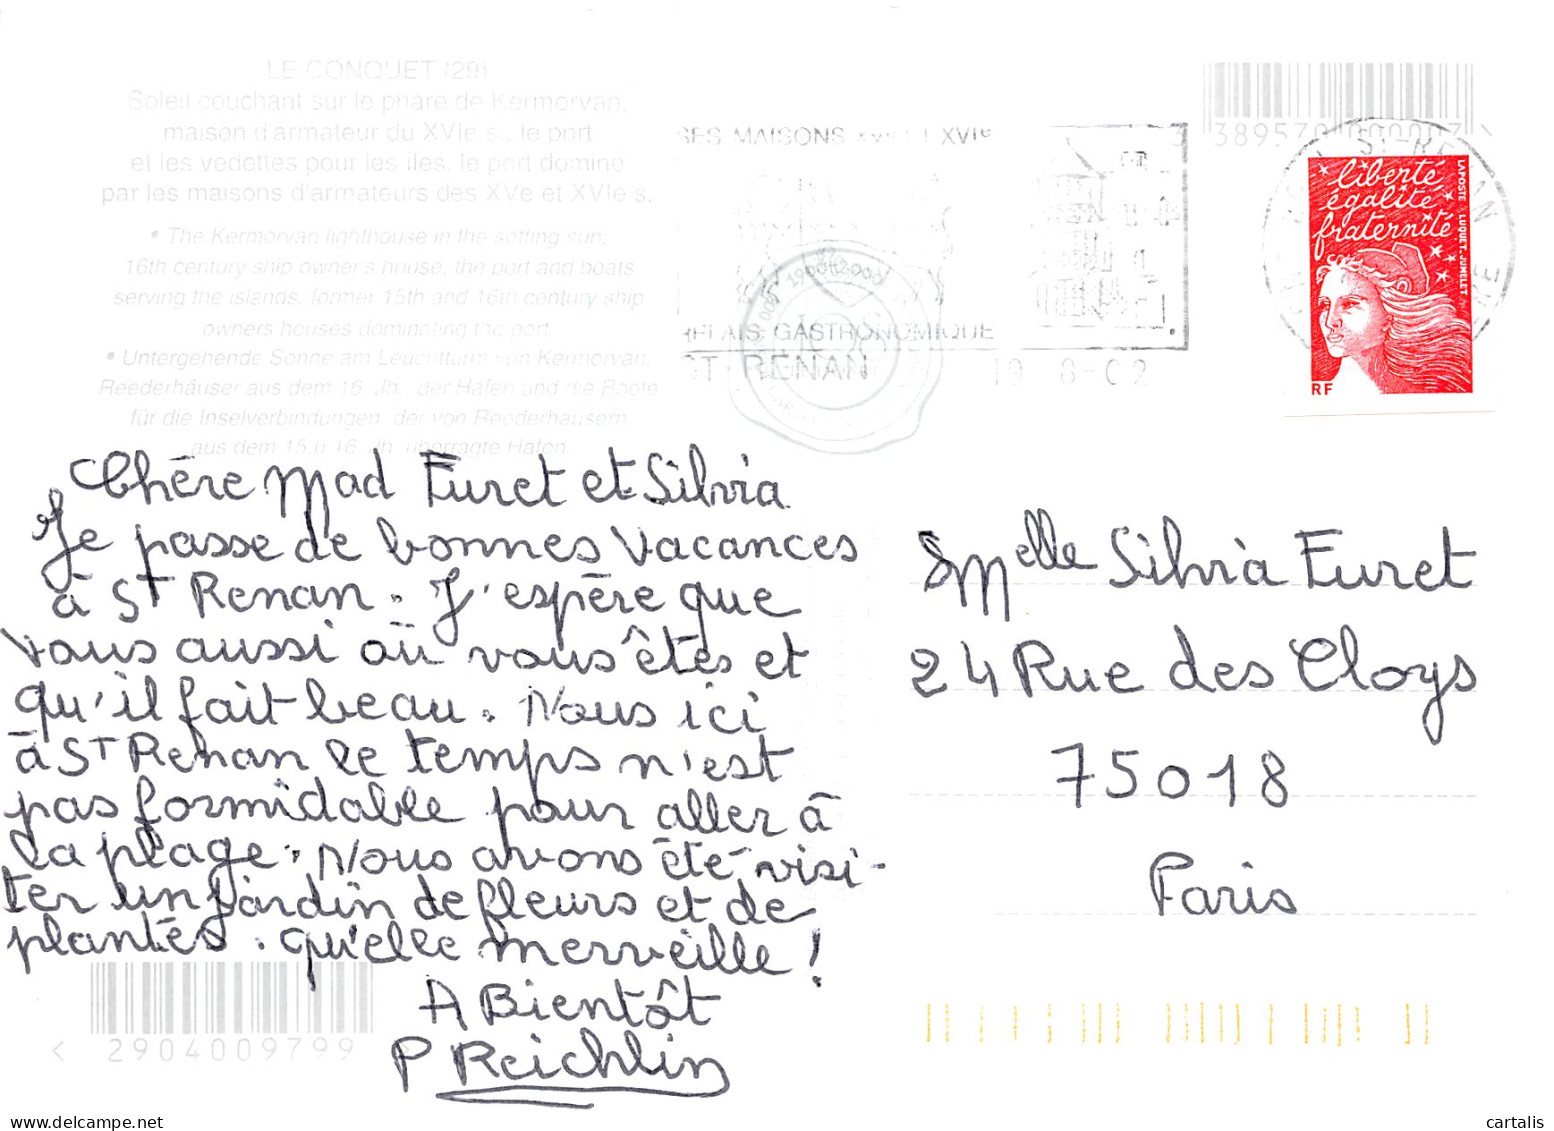 LE CONQUET (29)
Soleil couchant sur le phare de Kermorvan,
maison d'armateur du XVIe s., le port
et les vedettes pour les îles, le port dominé
par les maisons d'armateurs des XVe et XVIe s.
• The Kermorvan lighthouse in the setting sun,
16th century ship owner's house, the port and boats
serving the islands, former 15th and 16th century ship
owners houses dominating the port.
• Untergehende Sonne am Leuchtturm von Kermorvan,
Reederhäuser aus dem 16. Jh., der Hafen und die Boote
für die Inselverbindungen, der von Reederhäusern
aus dem 15.u.16. Jh. überragte Hafen.
SES MAISONS XVe ET XVIe
RELAIS GASTRONOMIQUE
ST RENAN 19 8-02
3 389570 000007
ST-RENAN
liberté
égalité
fraternité
LA POSTE LUQUET-JUMELET
RF
Chère Mad Furet et Silvia
Je passe de bonnes Vacances
à St Renan. J'espère que
vous aussi où vous êtes et
qu'il fait beau. Nous ici
à St Renan le temps n'est
pas formidable pour aller à
la plage. Nous avons été visi-
ter un jardin de fleurs et de
plantes. qu'elle merveille !
A Bientôt
P Reichlin
Melle Silvia Furet
24 Rue des Cloys
75018
Paris
< 2904009799
cartalis
www.delcampe.net